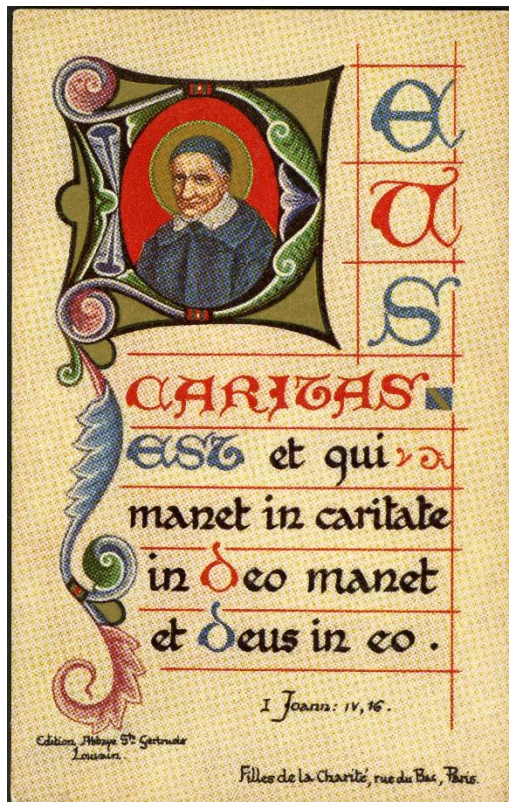 DEUS
CARITAS
EST et qui
manet in caritate
in deo manet
et deus in eo .
I Joann: IV, 16 .
Edition Abbaye Ste Gertrude
Louvain .
Filles de la Charité, rue du Bac, Paris.